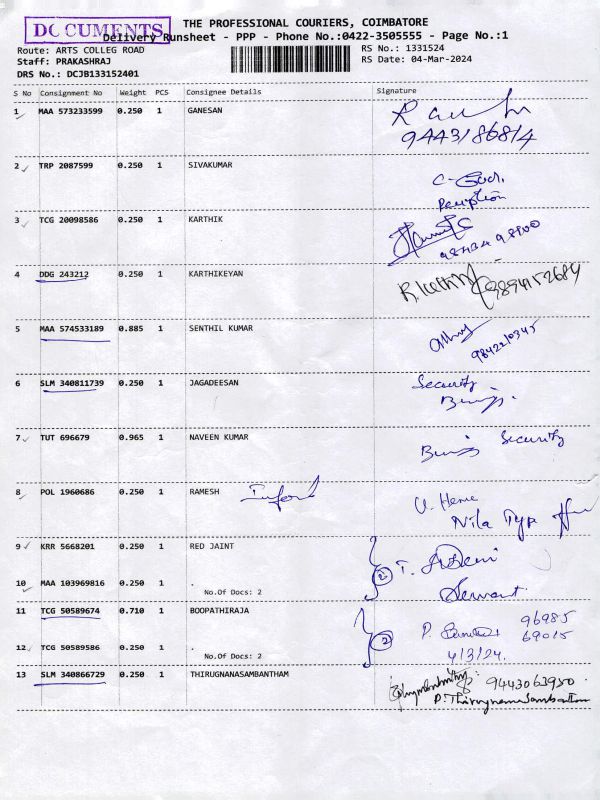 DOCUMENTS
THE PROFESSIONAL COURIERS, COIMBATORE
Delivery Runsheet - PPP - Phone No.:0422-3505555 - Page No.:1
Route: ARTS COLLEG ROAD
Staff: PRAKASHRAJ
DRS No.: DCJB133152401
RS No.: 1331524
RS Date: 04-Mar-2024
S No Consignment No Weight PCS Consignee Details Signature
1 MAA 573233599 0.250 1 GANESAN
9443186814
2 TRP 2087599 0.250 1 SIVAKUMAR
Reception
3 TCG 20098586 0.250 1 KARTHIK
4 DDG 243212 0.250 1 KARTHIKEYAN
9894152684
5 MAA 574533189 0.885 1 SENTHIL KUMAR
9842210345
6 SLM 340811739 0.250 1 JAGADEESAN Security
7 TUT 696679 0.965 1 NAVEEN KUMAR Security
8 POL 1960686 0.250 1 RAMESH
Nila Typ
9 KRR 5668201 0.250 1 RED JAINT
10 MAA 103969816 0.250 1 .
No.Of Docs: 2
2
Servant
11 TCG 50589674 0.710 1 BOOPATHIRAJA 96985
12 TCG 50589586 0.250 1 . 69015
No.Of Docs: 2
2
4/3/24.
13 SLM 340866729 0.250 1 THIRUGNANASAMBANTHAM 9443063950
P. Thirugnanasambantham